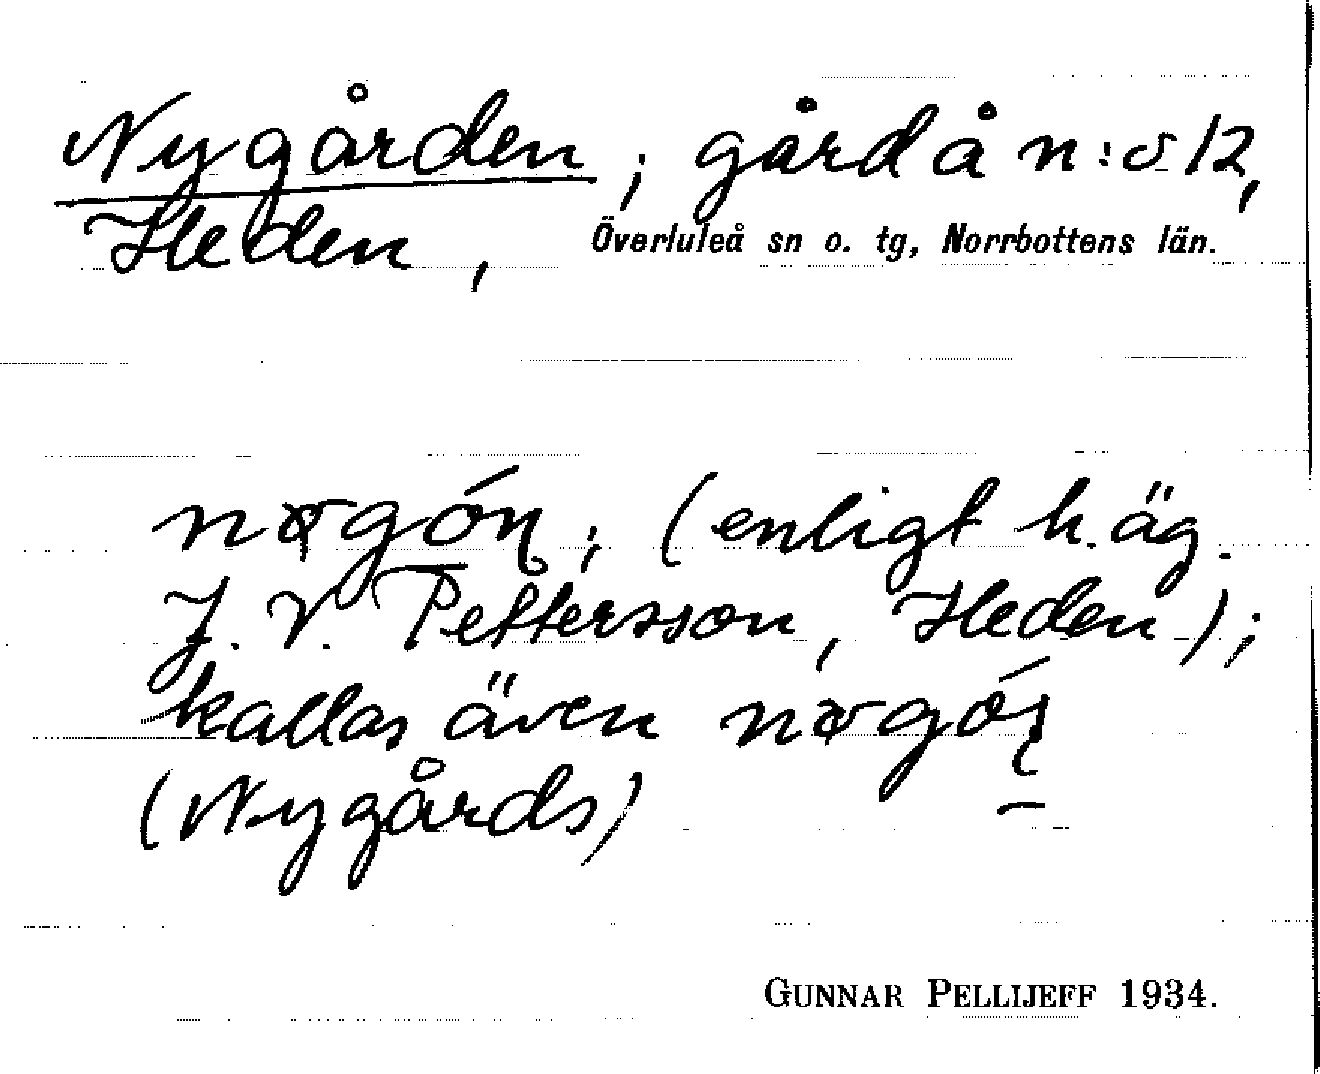 Nygården, gård å n:o 12,
Heden, Överluleå sn o. tg, Norrbottens län.
(enligt h.äg.
J. V. Pettersson, Heden);
kallas även
(Nygårds)
GUNNAR PELLIJEFF 1934.